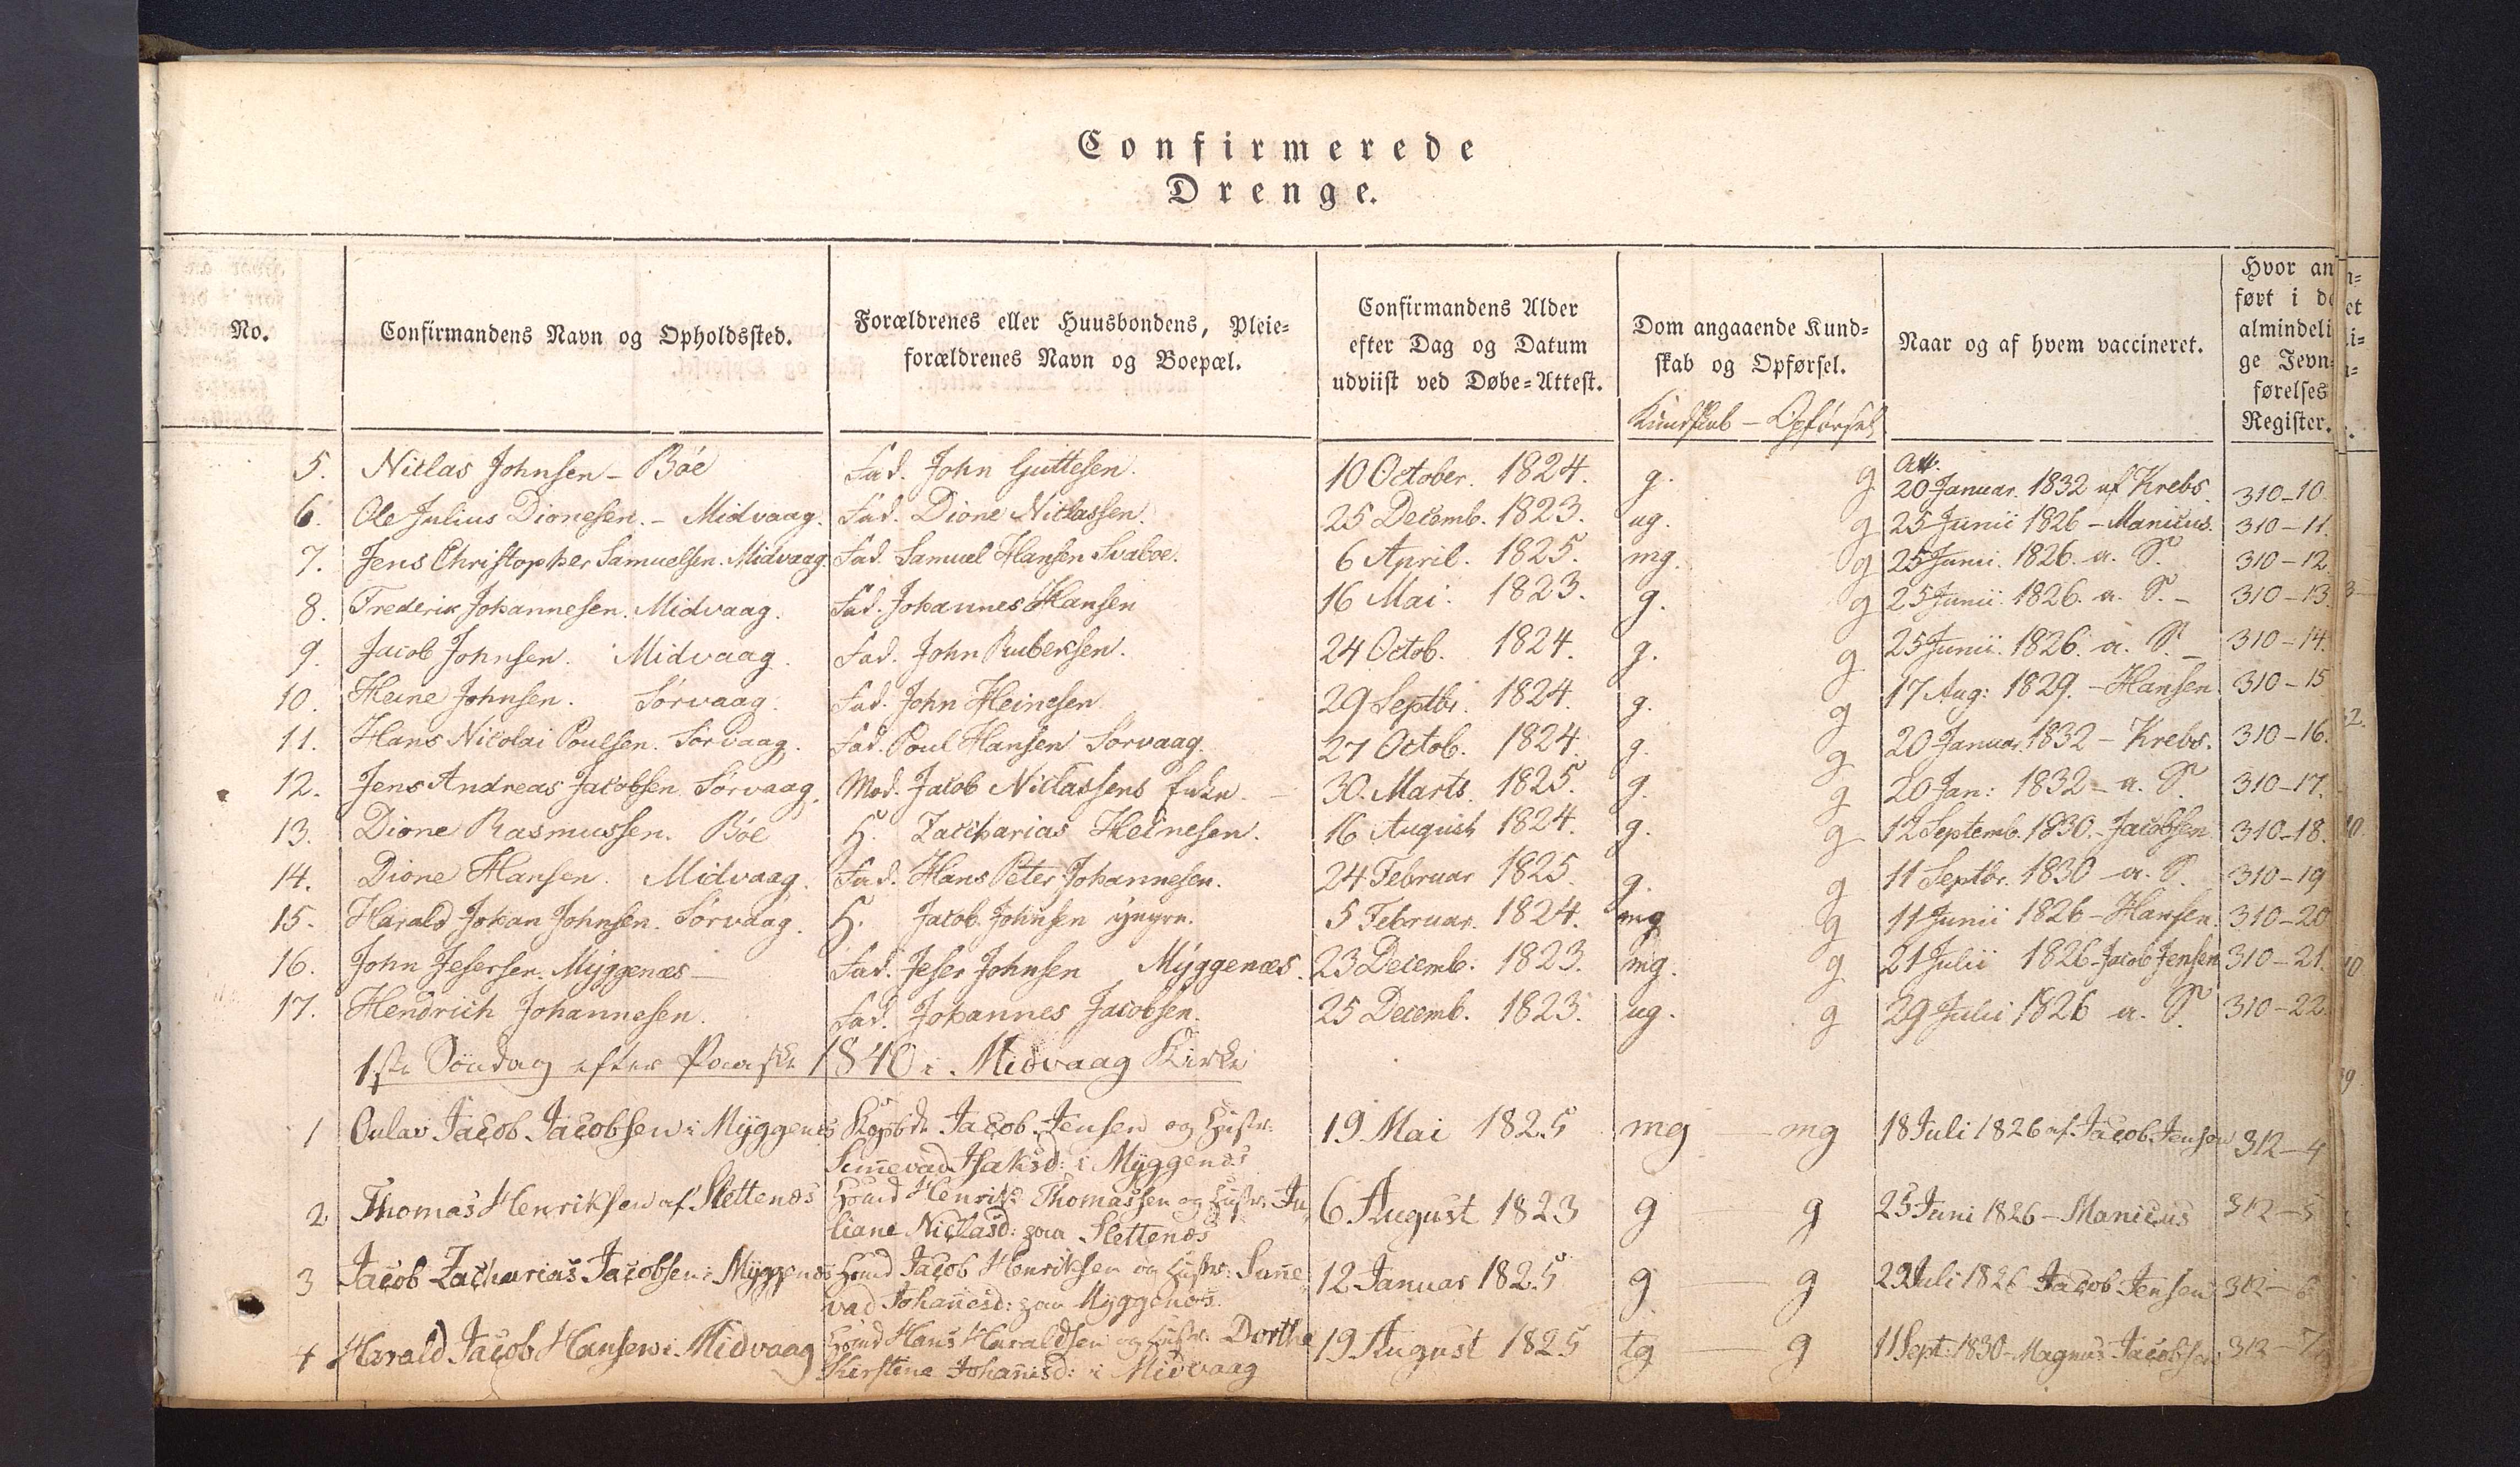 Confirmerede
Drenge.
No.
Confirmandens Navn og Opholdssted.
Forældrenes eller Huusbondens, Pleie=
forældrenes Navn og Boepæl.
Confirmandens Alder
efter Dag og Datum
udviist ved Døbe=Attest.
Dom angaaende Kund=
skab og Opførsel.
Kundskab - Opførsel
Naar og af hvem vaccineret.
Hvor an
ført i de
almindeli
ge Jevn=
førelses
Register.
5. Niclas Johnsen - Bøe Fad. John Guttesen. 10 October. 1824. g. g 20 Januar. 1832 af Krebs. 310-10.
6. Ole Julius Dionesen. - Midvaag. Fad. Dione Niclassen. 25 Decemb. 1823. ug. g 25 Junii 1826 - Manicus. 310-11.
7. Jens Christopher Samuelsen. Midvaag. Fad. Samuel Hansen Svaboe. 6 April. 1825. mg. g 25 Junii. 1826. a. S. 310-12.
8. Frederik Johannesen. Midvaag. Fad. Johannes Hansen 16 Mai. 1823. g. g 25 Junii. 1826. a. S. - 310-13.
9. Jacob Johnsen. Midvaag. Fad. John Rubeksen. 24 Octob. 1824. g. g 25 Junii. 1826. a. S. - 310-14.
10. Heine Johnsen. Sørvaag. Fad. John Heinesen. 29 Septbr. 1824. g. g 17 Aug: 1829. - Hansen. 310-15
11. Hans Nicolai Poulsen. Sørvaag. Fad. Poul Hansen Sørvaag. 27 Octob. 1824. g. g 20 Januar. 1832 - Krebs. 310-16.
12. Jens Andreas Jacobsen. Sørvaag. Mod. Jacob Niclassens Enke. - 30. Marts. 1825. g. g 20 Jan: 1832 - a. S. 310-17.
13. Dione Rasmussen. Bøe H. Zacharias Heinesen. 16 August 1824. g. g 12 Septemb. 1830. - Jacobsen 310-18.
14. Dione Hansen. Midvaag. Fad. Hans Peter Johannesen. 24 Februar 1825. g. g 11 Septbr. 1830 - a. S. 310-19
15. Harald Johan Johnsen. Sørvaag. H. Jacob Johnsen yngre. 5 Februar. 1824. mg g 11 Junii 1826 - Hansen. 310-20
16. John Jesersen. Myggenæs - Fad. Jeser Johnsen Myggenæs. 23 Decemb. 1823. mg. g 21 Julii 1826 - Jacob Jensen 310-21.
17. Hendrich Johannesen. Fad. Johannes Jacobsen. 25 Decemb. 1823. ug. g 29 Julii 1826 a. S. 310-22.
1ste Søndag efter Paaske 1840 i Midvaag Kirke
1 Oulav Jacob Jacobsen i Myggenæs Jacob Jensen og Hustr: 19 Mai 1825 mg - mg 18 Juli 1826 af Jacob Jensen 312-4
Sunnevad Isaksd: i Myggenæs
2 Thomas Henriksen af Slettenæs Henrik Thomassen og Hustr. Ju= 6 August 1823 g g 25 Juni 1826 - Manicus 312-5
liane Niclasd: paa Slettenæs
3 Jacob Zacharias Jacobsen i Myggenæs Jacob Henriksen og Hustr: Sune= 12 Januar 1825 g - g 29 Juli 1826 Jacob Jensen 312-6
vad Johanesd: paa Myggenæs.
4 Harald Jacob Hansen i Midvaag Hans Haraldsen og Hustr. Dorthe 19 August 1825 tg - g 11 Sept: 1830 - Magnus Jacobsen 312-7
Kirstine Johanisd: i Midvaag